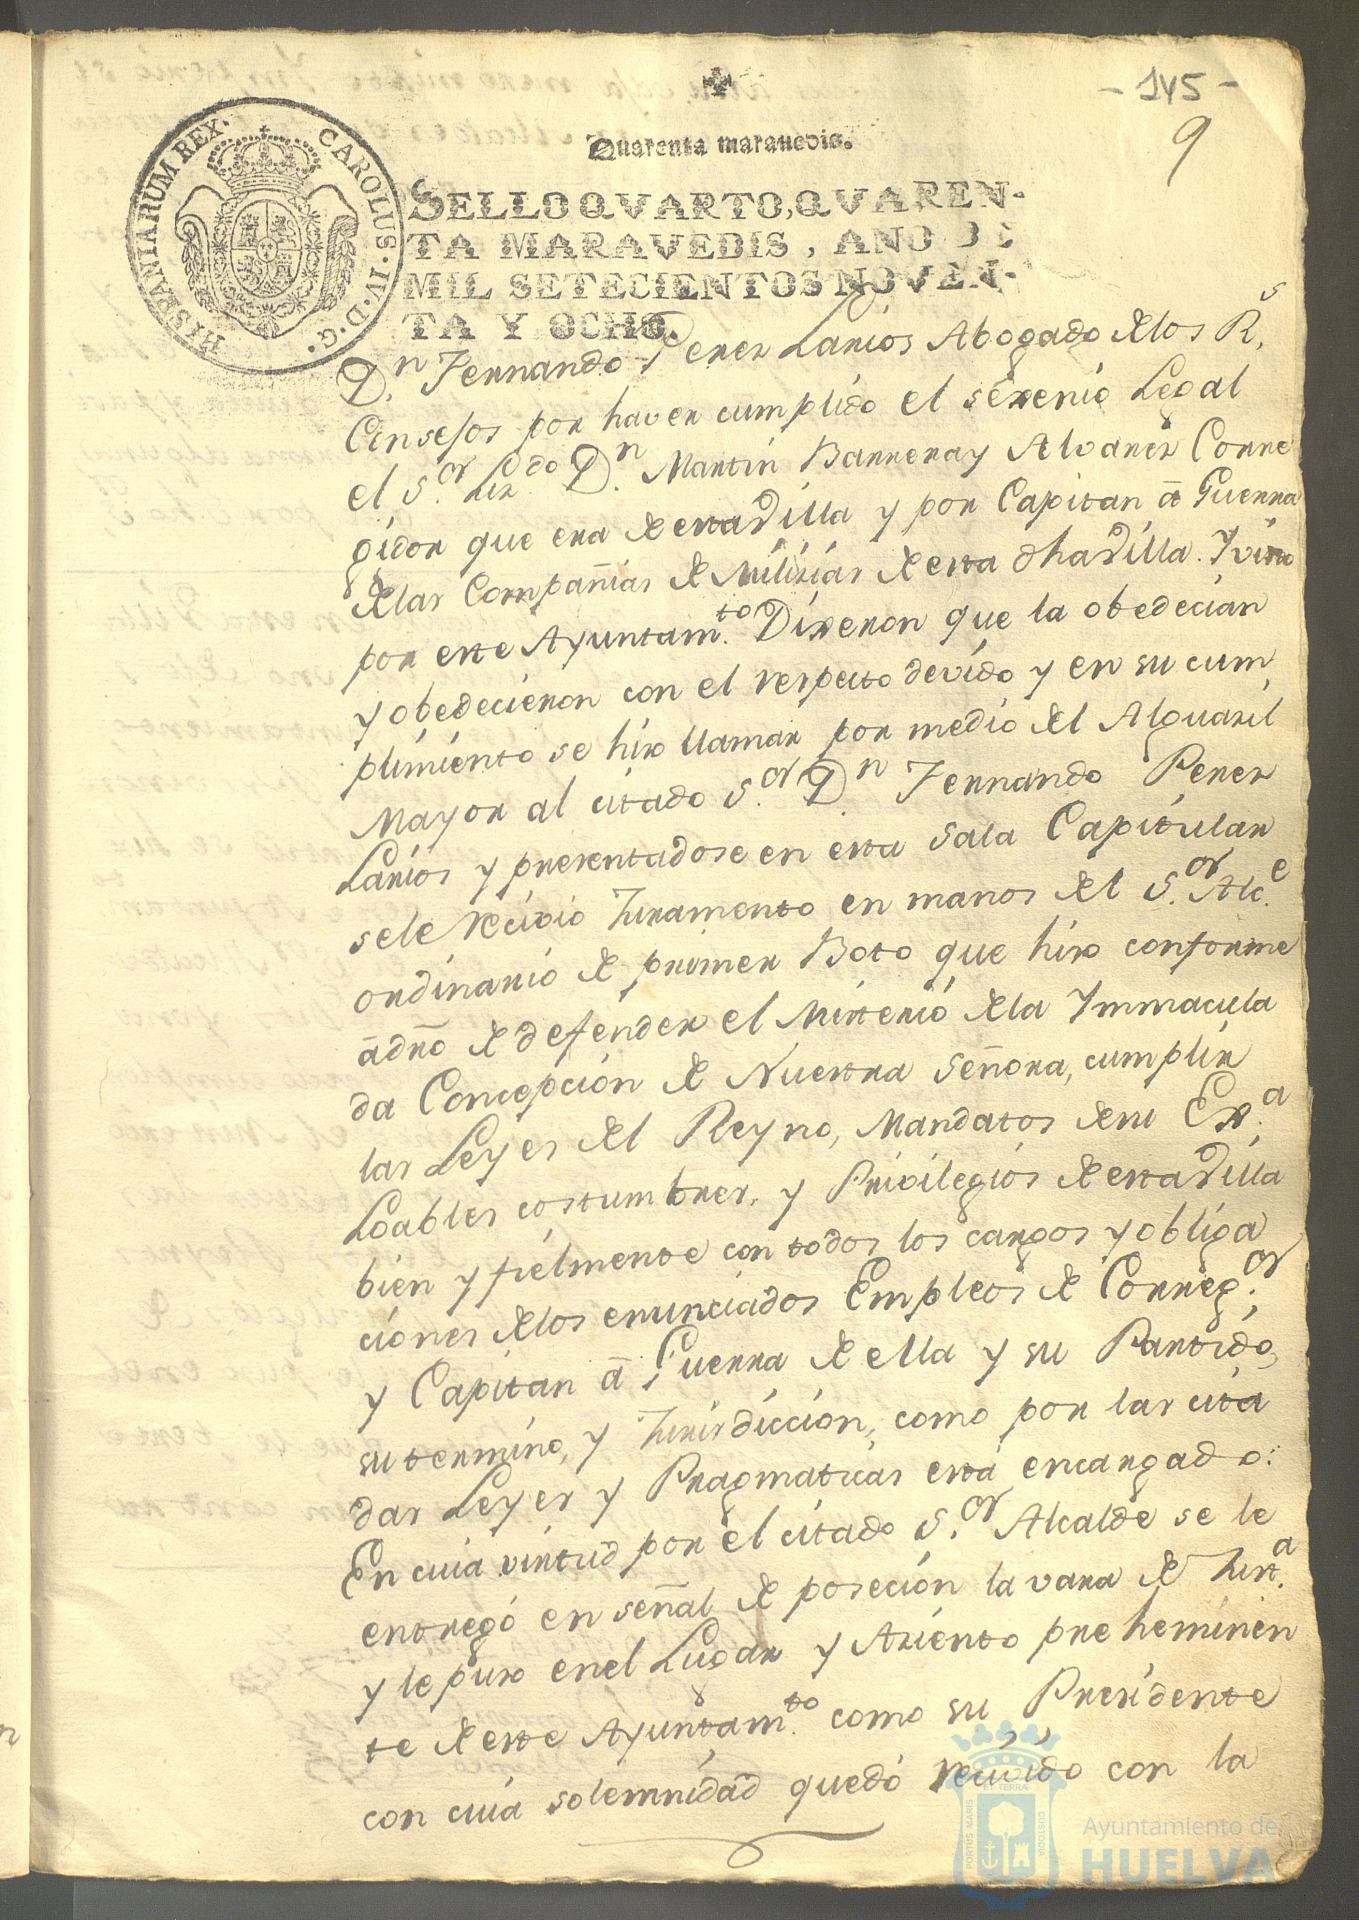 - 145 -
9
Quarenta marauedis.
SELLO QVARTO, QVAREN-
TA MARAVEDIS, AÑO DE
MIL SETECIENTOS NOVEN-
TA Y OCHO.
HISPANIARUM REX. CAROLUS. IV. D. G.
Dn. Fernando Perez Larios Abogado delos Rs.
Consejos por haver cumplido el sexenio Legal
el Sor. Lizdo Dn. Martin Barrera y Alvarez Corre
gidor que era de esta Villa y por Capitan â Guerra
delas Compañias de Milizias de esta dha Villa. Y visto
por este Ayuntamto. Dixeron que la obedecian
y obedecieron con el respecto devido y en su cum
plimiento se hizo llamar por medio del Alguazil
Mayor al citado Sor. Dn Fernando Perez
Larios y presentadose en esta Sala Capitular
sele recivio Juramento en manos del Sor. Alce.
ordinario de primer Boto que hizo conforme
â dro de defender el Misterio dela Ymmacula
da Concepcion de Nuestra Señora, cumplir
las Leyes del Reyno, Mandatos de su Exa.
Loables costumbres, y Privilegios de esta Villa
bien y fielmente con todos los cargos y obliga
ciones delos enunciados Empleos de Correg.or
y Capitan â Guerra de ella y su Partido,
su termino, y Jurisdiccion, como por las cita
das Leyes y Pragmaticas está encargado:
En cuia virtud por el citado Sor. Alcalde se le
entregó en señal de poseción la vara de Justa.
y le puso enel Lugar y Asiento preheminen
te de este Ayuntamto. como su Presidente
con cuia solemnidad quedó recivido con la
PORTUS MARIS ET TERRAE CUSTODIA
Ayuntamiento de
HUELVA